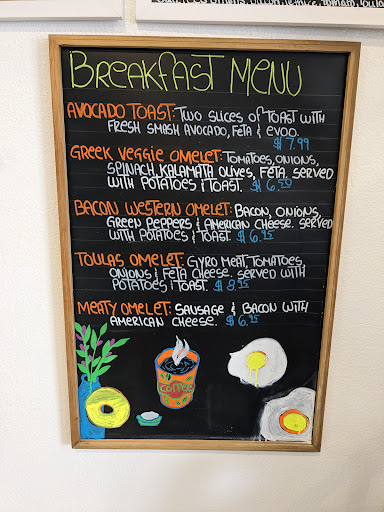 BREAKFAST MENU
AVOCADO TOAST: TWO SLICES OF TOAST WITH
FRESH SMASH AVOCADO, FETA & EVOO.
$7.99
GREEK VEGGIE OMELET: TOMATOES, ONIONS,
SPINACH, KALAMATA OLIVES, FETA. SERVED
WITH POTATOES & TOAST. $6.50
BACON WESTERN OMELET: BACON, ONIONS,
GREEN PEPPERS & AMERICAN CHEESE. SERVED
WITH POTATOES & TOAST. $6.95
TOULAS OMELET: GYRO MEAT, TOMATOES,
ONIONS & FETA CHEESE. SERVED WITH
POTATOES & TOAST. $8.95
MEATY OMELET: SAUSAGE & BACON WITH
AMERICAN CHEESE. $6.95
COFFEE